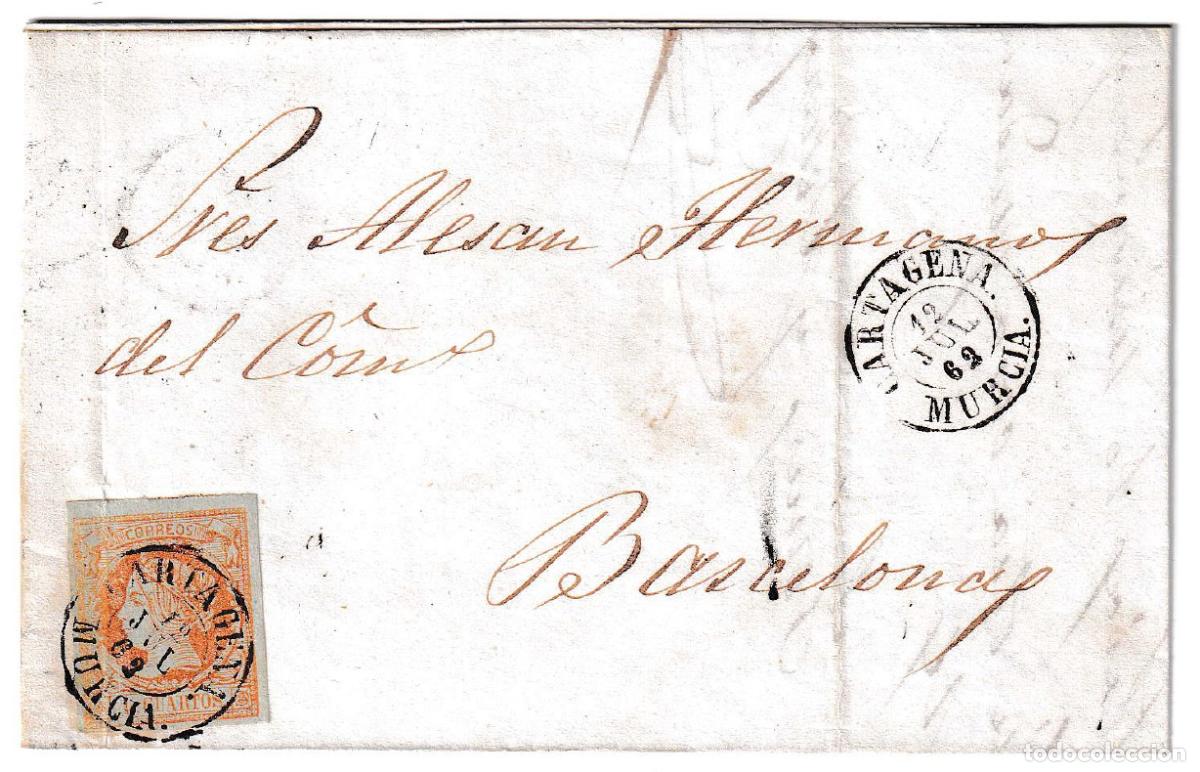 Sres Alesan Hermanos
del Comº
CARTAGENA.
12
JUL
62
MURCIA.
Barcelona
CORREOS
CUARTOS
CARTAGENA.
JUL
62
MURCIA.
todocoleccion